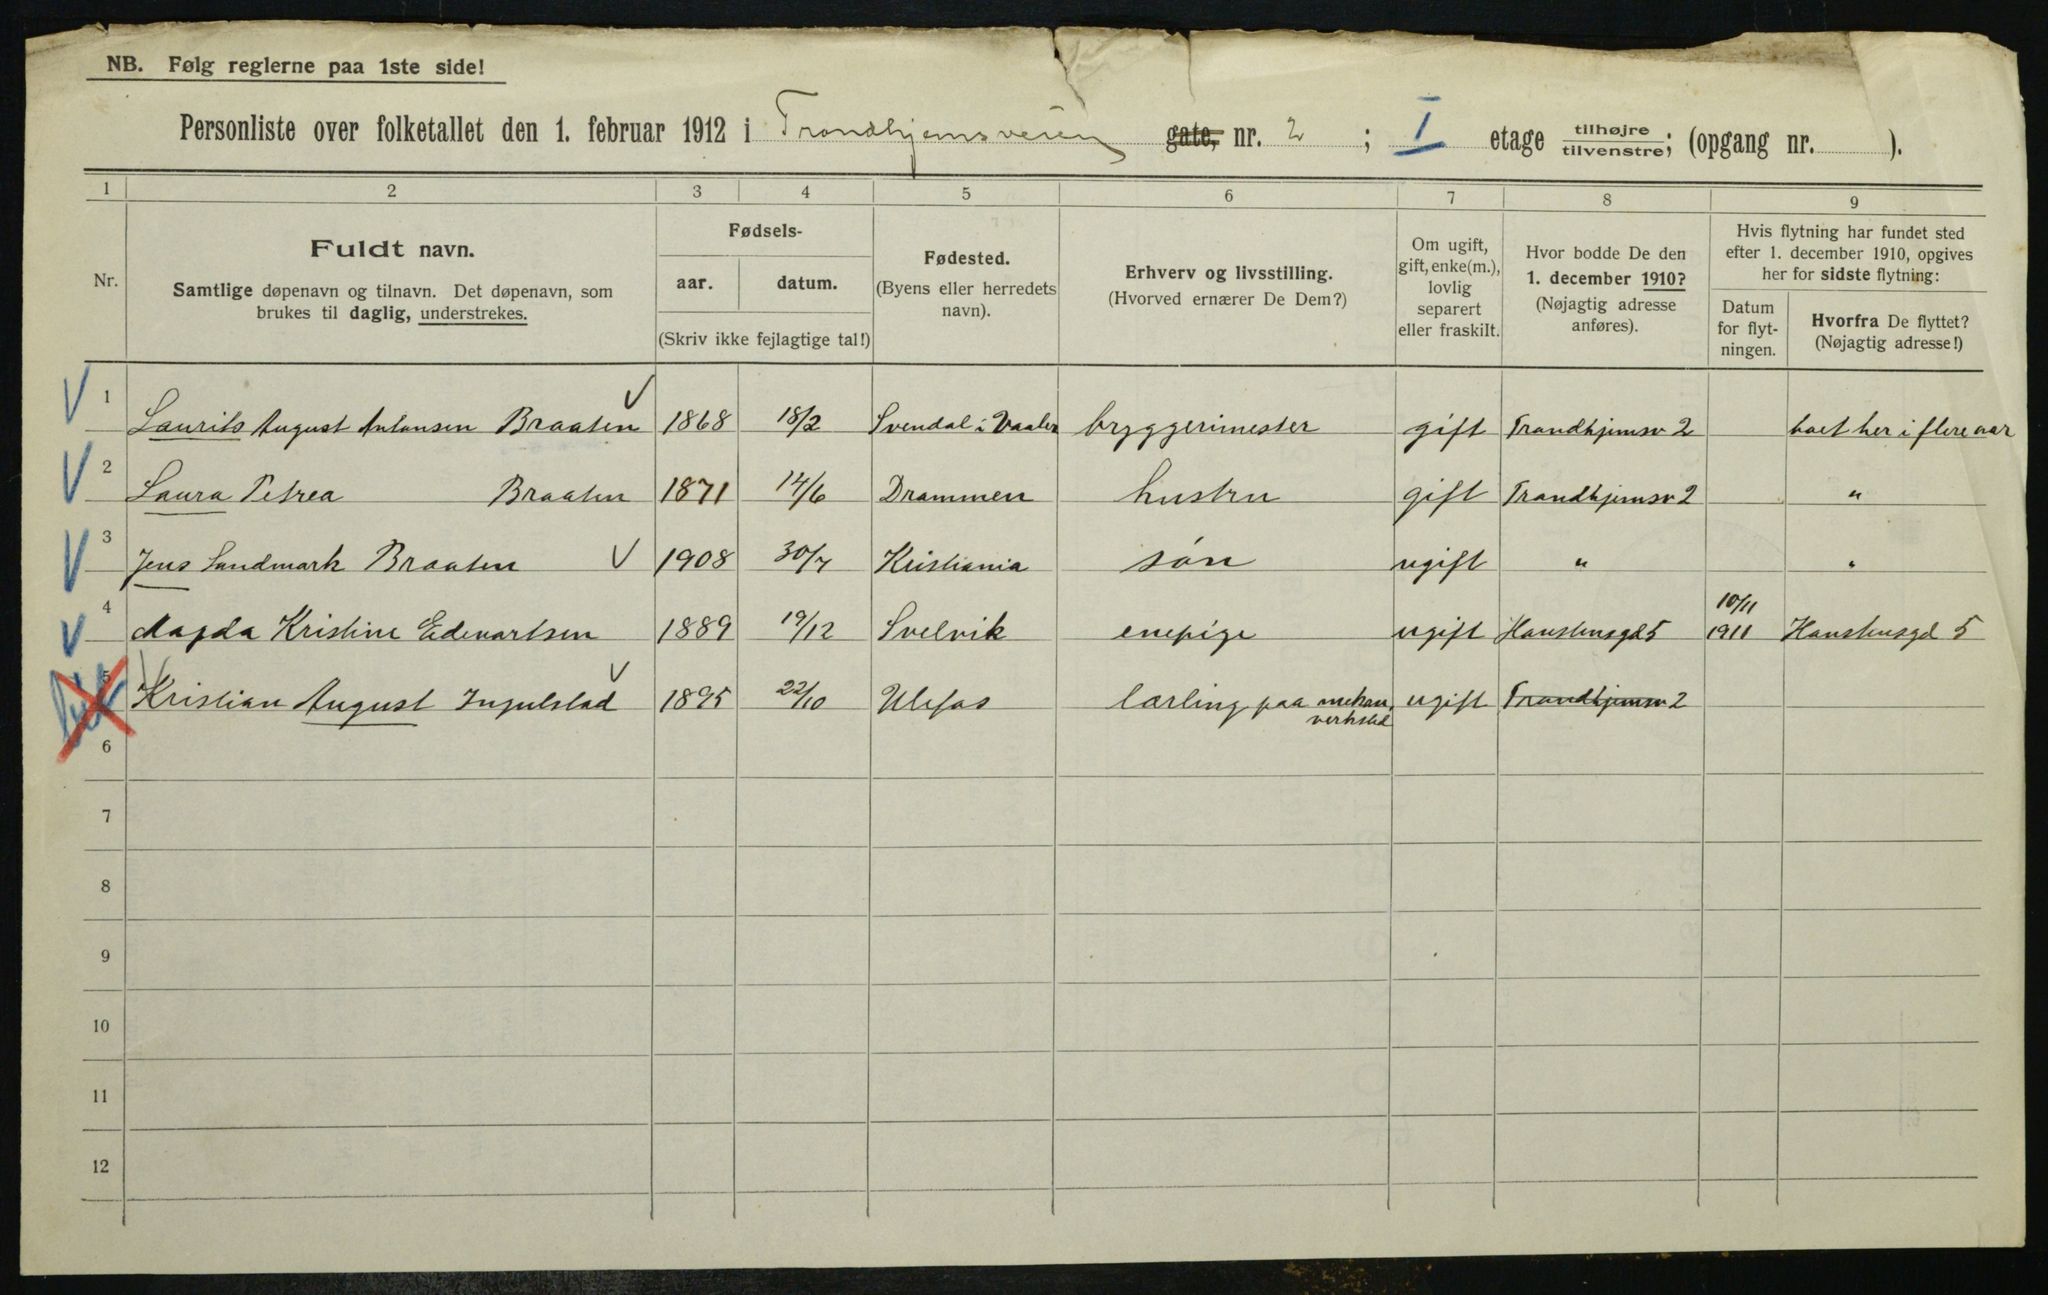 NB. Følg reglerne paa 1ste side!
Personliste over folketallet den 1. februar 1912 i Trondhjemsveien gate, nr. 2 ; I etage tilhøjre tilvenstre; (opgang nr. ).
1 2 3 4 5 6 7 8 9
Nr.
Fuldt navn.
Samtlige døpenavn og tilnavn. Det døpenavn, som
brukes til daglig, understrekes.
Fødsels-
aar. datum.
(Skriv ikke fejlagtige tal!)
Fødested.
(Byens eller herredets
navn).
Erhverv og livsstilling.
(Hvorved ernærer De Dem?)
Om ugift,
gift, enke(m.),
lovlig
separert
eller fraskilt.
Hvor bodde De den
1. december 1910?
(Nøjagtig adresse
anføres).
Hvis flytning har fundet sted
efter 1. december 1910, opgives
her for sidste flytning:
Datum
for flyt-
ningen.
Hvorfra De flyttet?
(Nøjagtig adresse!)
1 Laurits August Antonsen Braaten 1868 18/2 Svendal i Vaaler bryggerimester gift Trondhjemsv 2 boet her i flere aar
2 Laura Petrea Braaten 1871 14/6 Drammen hustru gift Trondhjemsv 2 "
3 Jens Sandmark Braaten 1908 30/7 Kristiania søn ugift " "
4 Magda Kristine Edevartsen 1889 19/12 Svelvik enepige ugift Hanstensgd 5 10/11 1911 Hanstensgd 5
5 Kristian August Ingulstad 1895 22/10 Ulefos lærling paa mekan. verksted ugift Trondhjemsv 2
6
7
8
9
10
11
12